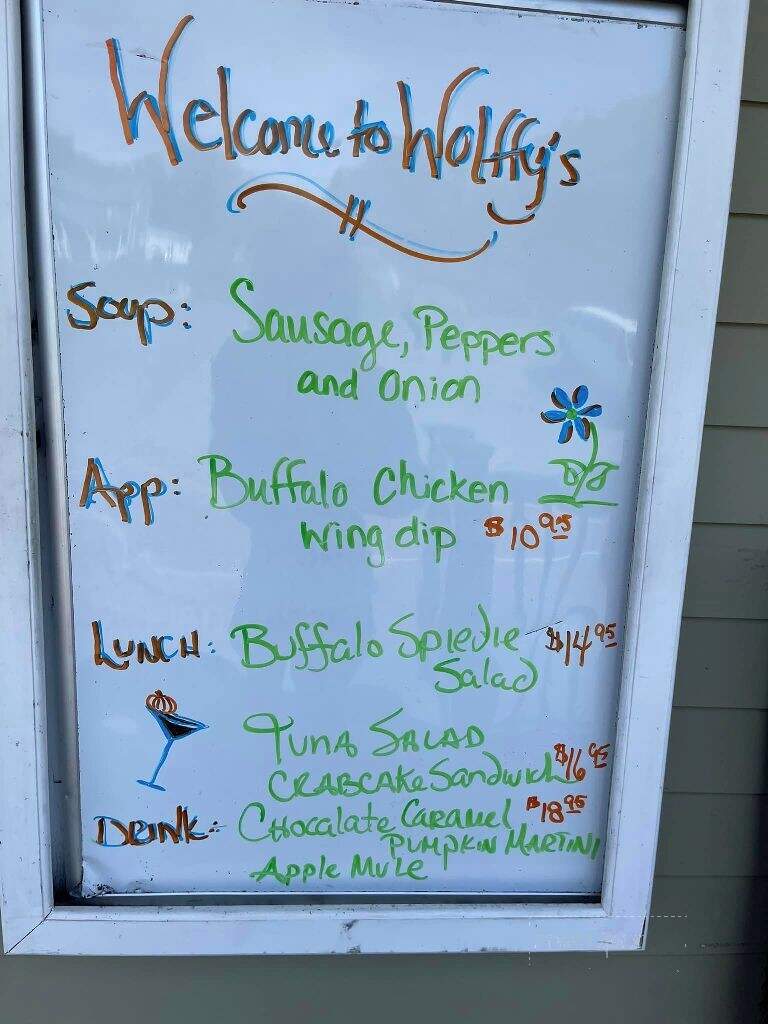 Welcome to Wolffy's
Soup: Sausage, Peppers
and Onion
App: Buffalo Chicken
Wing dip $10.95
Lunch: Buffalo Spiedie $14.95
Salad
Tuna Salad
Crabcake Sandwich $16.95
Drink: Chocalate Caramel $18.95
Pumpkin Martini
Apple Mule